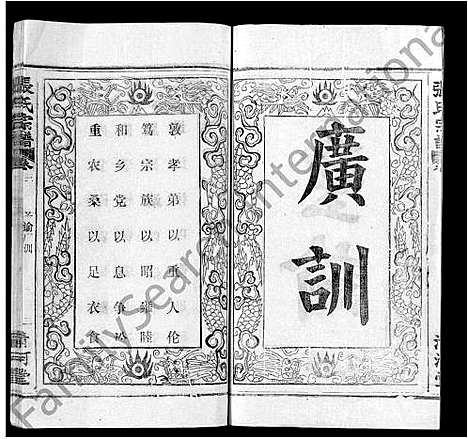 張氏宗譜
廣訓
敦孝弟以重人伦
篤宗族以昭雍睦
和乡党以息争讼
重农桑以足衣食
張氏宗譜 卷一
諭訓
清河堂
FamilySearch International